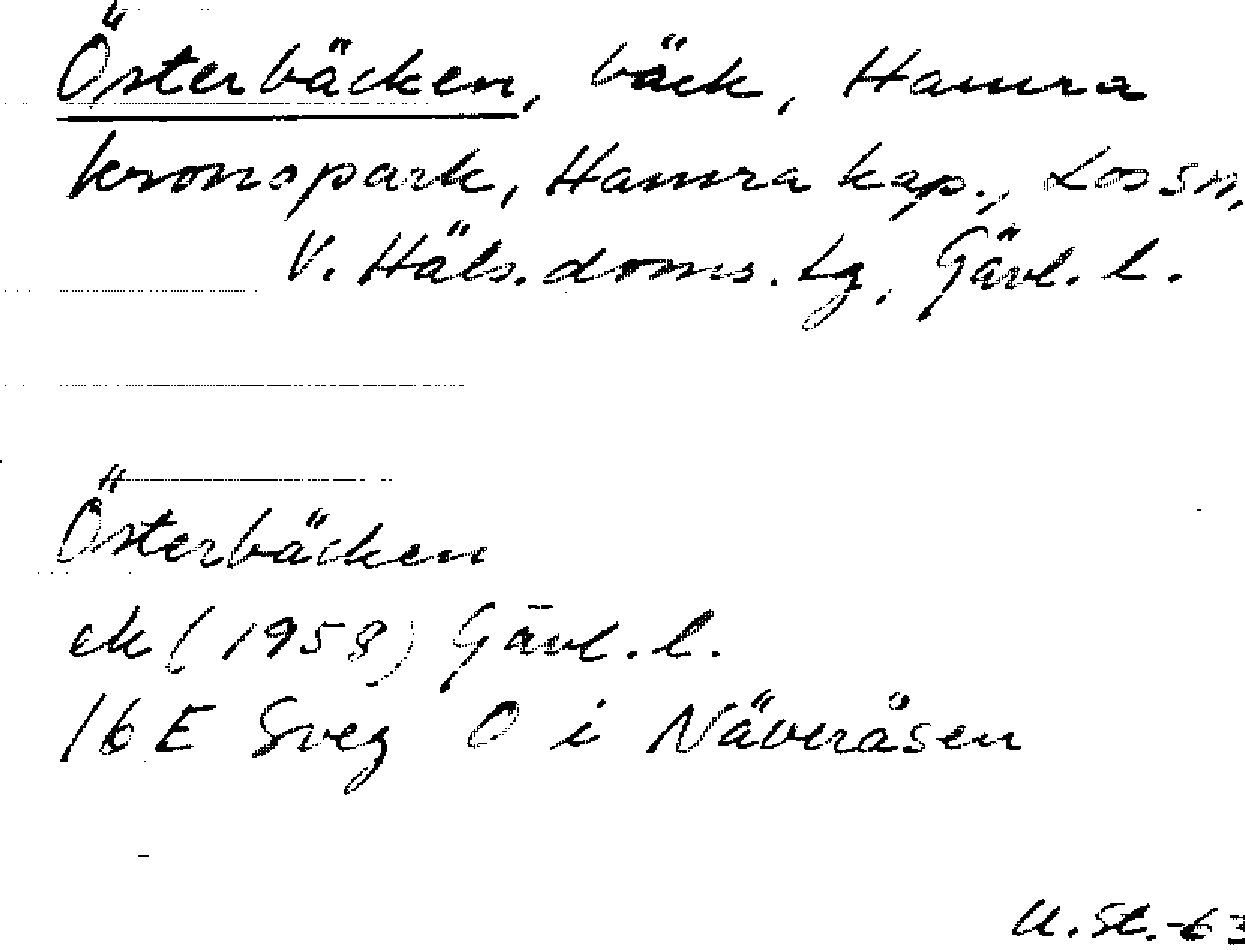 Österbäcken, bäck, Hamra
kronopark, Hamra kap., Los sn,
V. Häls. doms. lg, Gävl. l.
Österbäcken
ek (1958) Gävl. l.
16 E Sveg O i Näveråsen
U. St. -63